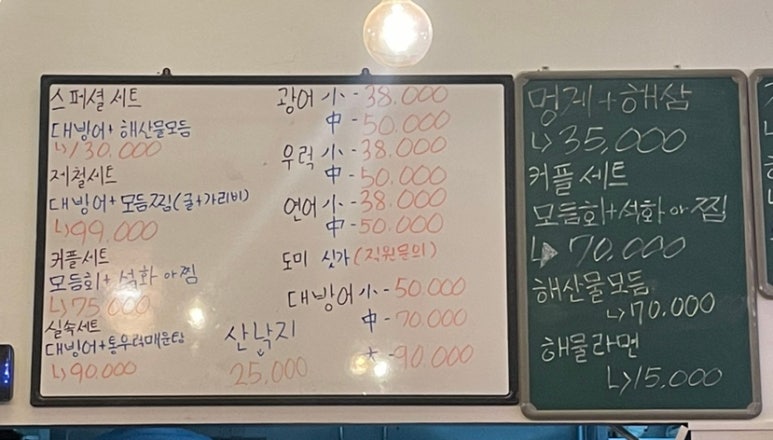 스페셜세트
대방어+해산물모듬
↳130.000
제철세트
대방어+모듬찜(굴+가리비)
↳99.000
커플세트
모듬회+석화 or 찜
↳75.000
실속세트
대방어+통우럭매운탕
↳90.000
광어 小-38.000
中-50.000
우럭 小-38.000
中-50.000
연어 小-38.000
中-50.000
도미 싯가(직원문의)
대방어 小-50.000
中-70.000
大-90.000
산낙지
25,000
멍게+해삼
↳35,000
커플세트
모듬회+석화 or 찜
↳70.000
해산물모듬
↳70.000
해물라면
↳15.000